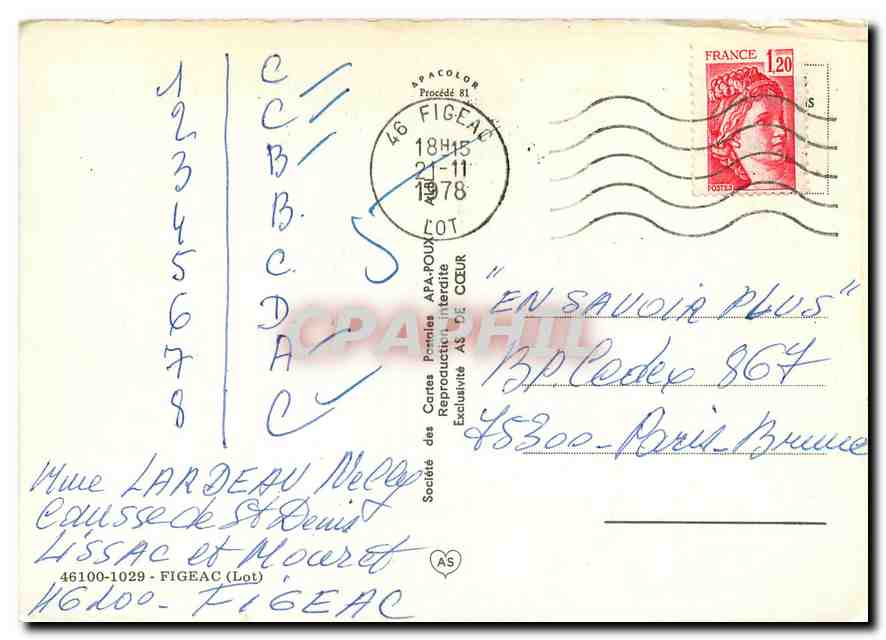 1 C
2 C
3 B
4 B.
5 C.
6 D
7 A
8 C
5
Mme LARDEAU Nelly
Causse de St Denis
Lissac et Mouret
46100-1029 - FIGEAC (Lot)
46100 - FIGEAC
APACOLOR
Procédé 81
46 FIGEAC
18H15
21-11
1978
LOT
Société des Cartes Postales APA-POUX ALBI
Reproduction interdite
Exclusivité AS DE CŒUR
AS
FRANCE 1,20
POSTES
"EN SAVOIR PLUS"
BP. Cedex 867
75300 - Paris - Brune
CPAPHIL